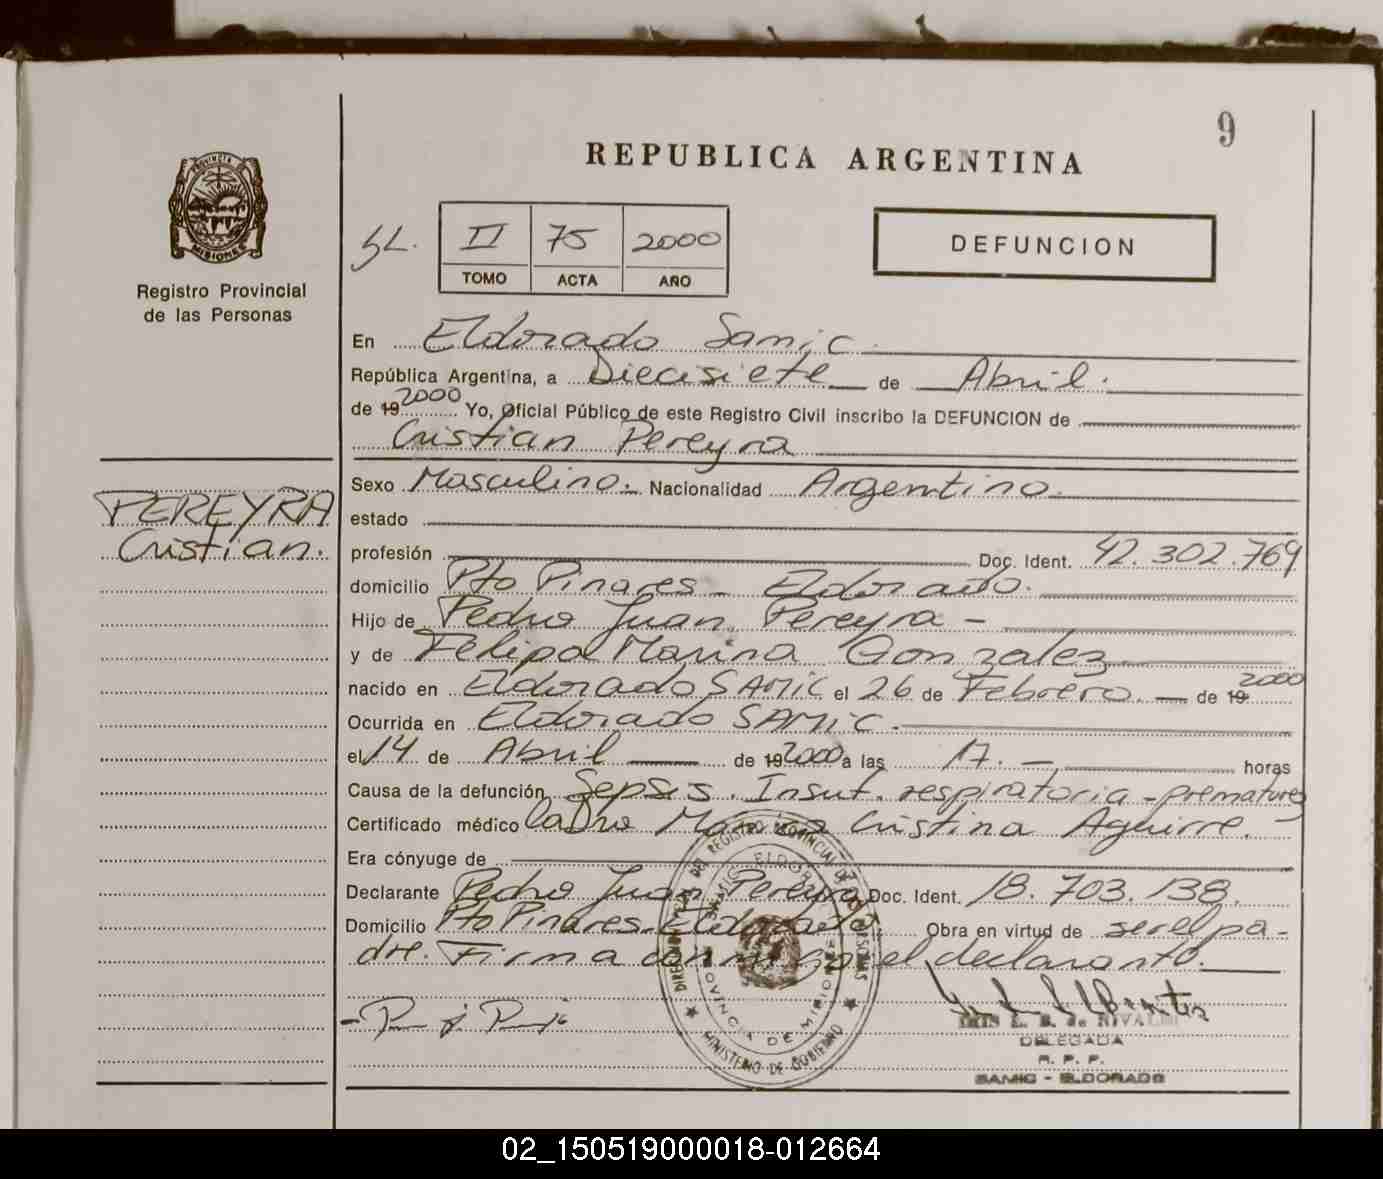 9
REPUBLICA ARGENTINA
PROVINCIA
MISIONES
Registro Provincial
de las Personas
II 75 2000
TOMO ACTA AÑO
DEFUNCION
En Eldorado Samic
República Argentina, a Diecisiete de Abril.
de 19 2000 Yo, Oficial Público de este Registro Civil inscribo la DEFUNCION de
Cristian Pereyra
PEREYRA
Cristian.
Sexo Masculino. Nacionalidad Argentino.
estado
profesión Doc. Ident. 42.302.769
domicilio Pto Pinares - Eldorado.
Hijo de Pedro Juan Pereyra -
y de Felipa Marina Gonzalez
nacido en Eldorado SAMIC el 26 de Febrero. de 19 2000
Ocurrida en Eldorado SAMIC.
el 14 de Abril de 19 2000 a las 17. horas
Causa de la defunción Sepsis. Insuf. respiratoria - prematurez
Certificado médico la Dra Cristina Aguirre.
Era cónyuge de
Declarante Pedro Juan Pereyra Doc. Ident. 18.703.138.
Domicilio Pto Pinares - Eldorado. Obra en virtud de ser el pa-
dre. Firma conmigo el declarante.
DELEGADA
R. P. P.
SAMIC - ELDORADO
MINISTERIO DE GOBIERNO
PROVINCIA DE MISIONES
02_150519000018-012664